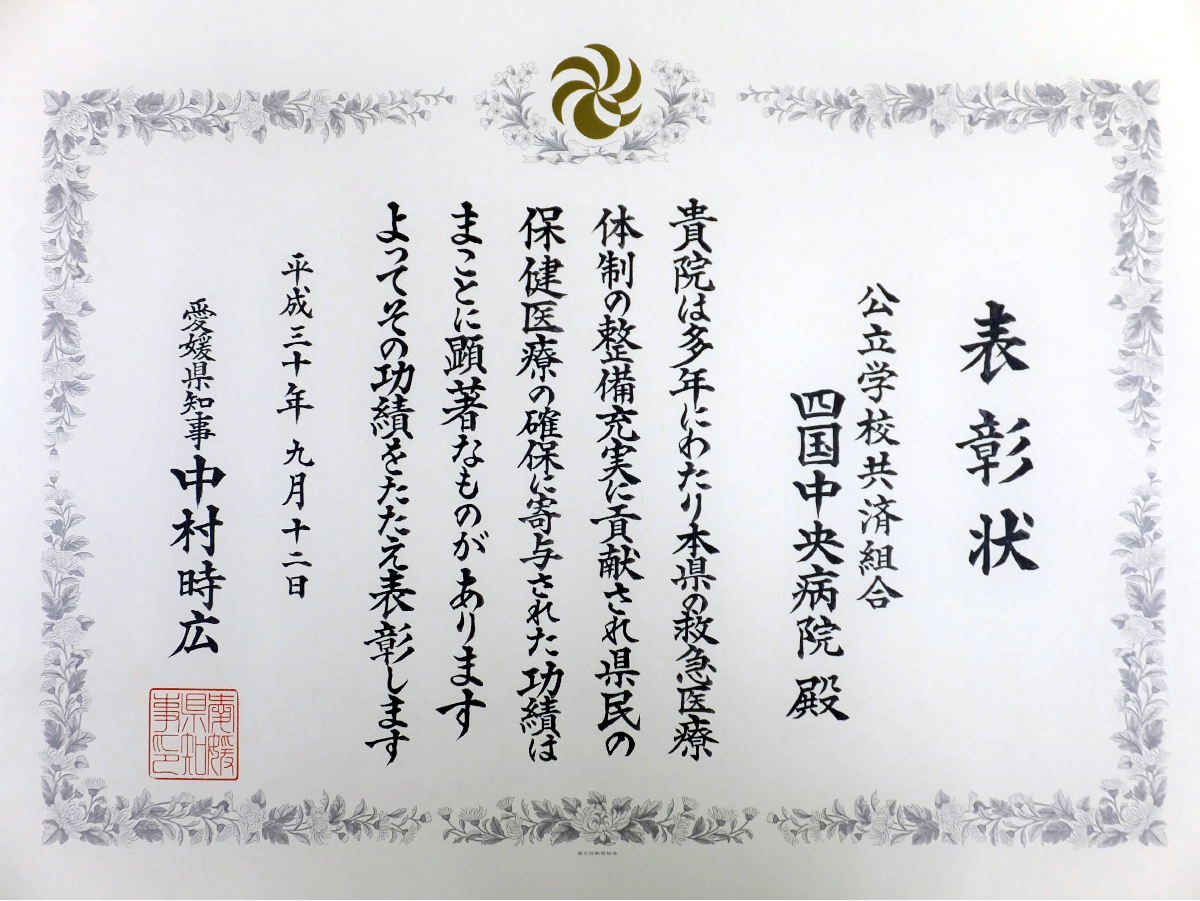 表彰状
公立学校共済組合
四国中央病院 殿
貴院は多年にわたり本県の救急医療
体制の整備充実に貢献され県民の
保健医療の確保に寄与された功績は
まことに顕著なものがあります
よってその功績をたたえ表彰します
平成三十年 九月十二日
愛媛県知事 中村時広
愛媛県知事印